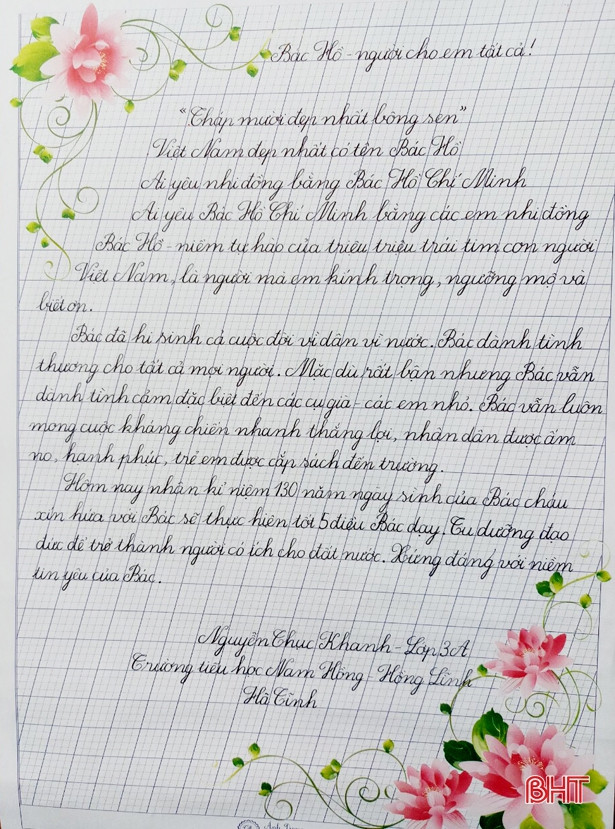 Bác Hồ - người cho em tất cả!
"Tháp mười đẹp nhất bông sen"
Việt Nam đẹp nhất có tên Bác Hồ
Ai yêu nhi đồng bằng Bác Hồ Chí Minh
Ai yêu Bác Hồ Chí Minh bằng các em nhi đồng
Bác Hồ - niềm tự hào của triệu triệu trái tim con người
Việt Nam, là người mà em kính trọng, ngưỡng mộ và
biết ơn.
Bác đã hi sinh cả cuộc đời vì dân vì nước. Bác dành tình
thương cho tất cả mọi người. Mặc dù rất bận nhưng Bác vẫn
dành tình cảm đặc biệt đến các cụ già - các em nhỏ. Bác vẫn luôn
mong cuộc kháng chiến nhanh thắng lợi, nhân dân được ấm
no, hạnh phúc, trẻ em được cắp sách đến trường.
Hôm nay nhân kỉ niệm 130 năm ngày sinh của Bác cháu
xin hứa với Bác sẽ thực hiện tốt 5 điều Bác dạy. Tu dưỡng đạo
đức để trở thành người có ích cho đất nước. Xứng đáng với niềm
tin yêu của Bác.
Nguyễn Thục Khanh - Lớp 3A
Trường tiểu học Nam Hồng - Hồng Lĩnh
Hà Tĩnh
BHT